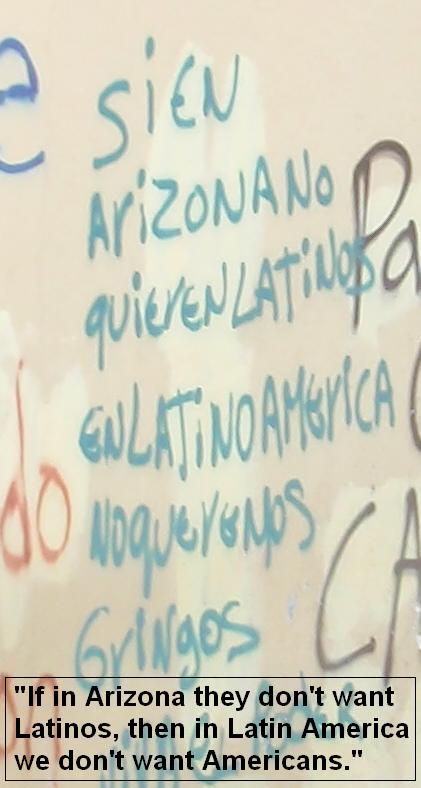 e
SiEN
ARiZONA NO
QUIEREN LATiNOS
Pa
EN LATiNOAMERICA
do
NO QUEREMOS
CA
GRINGOS
"If in Arizona they don't want
Latinos, then in Latin America
we don't want Americans."